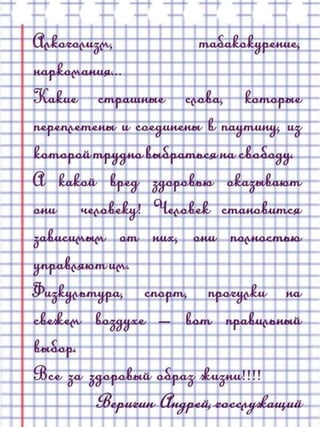 Алкоголизм, табакокурение,
наркомания...
Какие страшные слова, которые
переплетены и соединены в паутину, из
которой трудно выбраться на свободу.
А какой вред здоровью оказывают
они человеку! Человек становится
зависимым от них, они полностью
управляют им.
Физкультура, спорт, прогулки на
свежем воздухе – вот правильный
выбор.
Все за здоровый образ жизни!!!!
Веричин Андрей, госслужащий